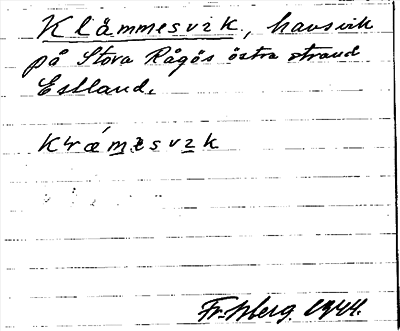 Klåmmesvik, havsvik
på Stora Rågös östra strand
Estland.
Krámesvik
Fr. Isberg. 1944.